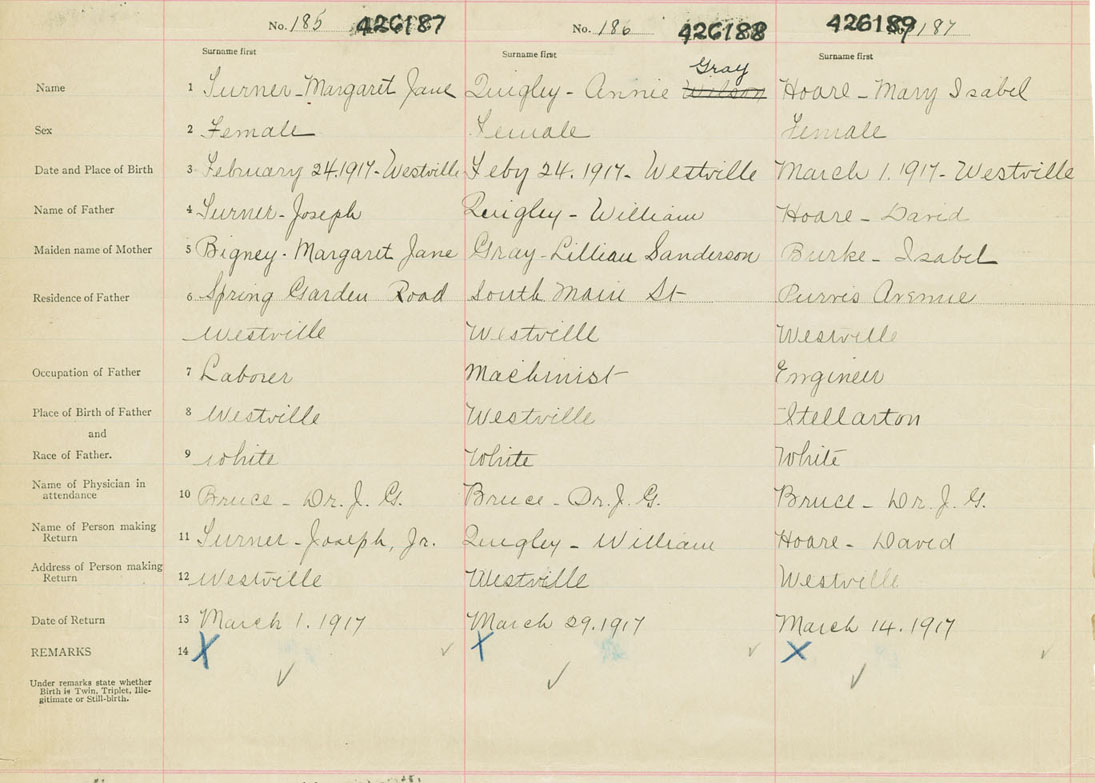 No. 185 426187 No. 186 426188 426189 No. 187
Surname first Surname first Surname first
Gray
Name 1 Turner - Margaret Jane Quigley - Annie Wilson Hoare - Mary Isabel
Sex 2 Female Female Female
Date and Place of Birth 3 February 24.1917 - Westville Feby 24. 1917 - Westville March 1. 1917 - Westville
Name of Father 4 Turner - Joseph Quigley - William Hoare - David
Maiden name of Mother 5 Bigney - Margaret Jane Gray - Lillian Sanderson Burke - Isabel
Residence of Father 6 Spring Garden Road South Main St Purvis Avenue
Westville Westville Westville
Occupation of Father 7 Laborer Machinist Engineer
Place of Birth of Father 8 Westville Westville Stellarton
and
Race of Father. 9 White White White
Name of Physician in
attendance 10 Bruce - Dr. J. G. Bruce - Dr. J. G. Bruce - Dr. J. G.
Name of Person making
Return 11 Turner - Joseph, Jr. Quigley - William Hoare - David
Address of Person making
Return 12 Westville Westville Westville
Date of Return 13 March 1. 1917 March 29. 1917 March 14. 1917
REMARKS 14 X X X
Under remarks state whether
Birth is Twin, Triplet, Ille-
gitimate or Still-birth.